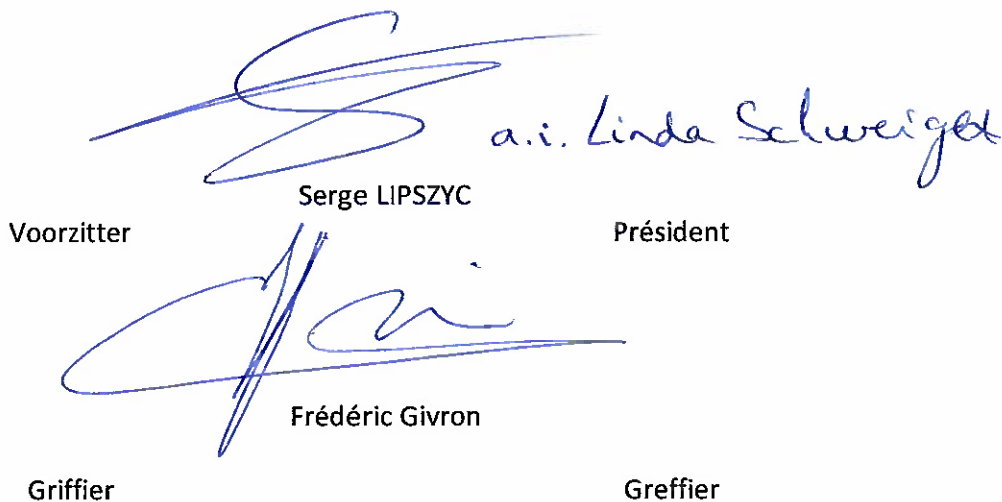 a.i. Linda Schweiger
Serge LIPSZYC
Voorzitter Président
Frédéric Givron
Griffier Greffier